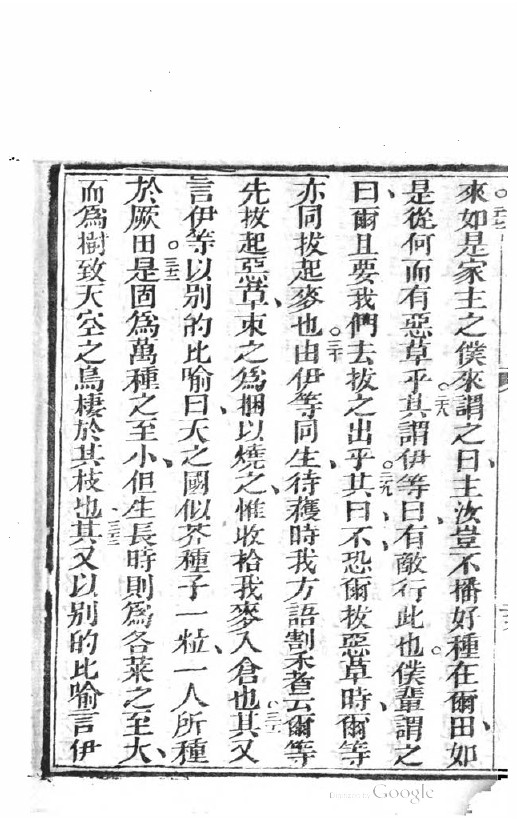 來如是家主之僕來謂之曰主汝豈不播好種在爾田如
是從何而有惡草乎其謂伊等曰有敵行此也僕輩謂之
曰爾且要我們去拔之出乎其曰不恐爾拔惡草時爾等
亦同拔起麥也由伊等同生待穫時我方語割禾者云爾等
先拔起惡草束之為捆以燒之惟收拾我麥入倉也其又
言伊等以别的比喻曰天之國似芥種子一粒一人所種
於厥田是固為萬種之至小但生長時則為各菜之至大
而為樹致天空之鳥棲於其枝也其又以别的比喻言伊
Digitized by Google